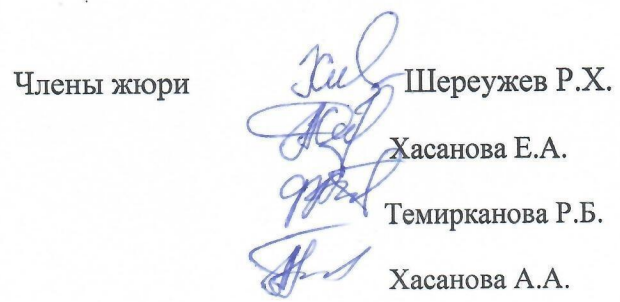 Члены жюри Шереужев Р.Х.
Хасанова Е.А.
Темирканова Р.Б.
Хасанова А.А.